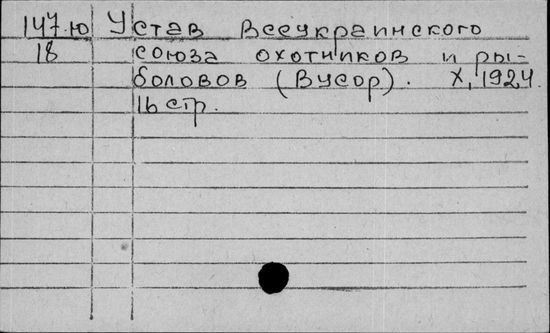 147.ю Устав Всеукраинского
18 союза охотников и ры-
боловов (Вусор). X, 1924
16 стр.